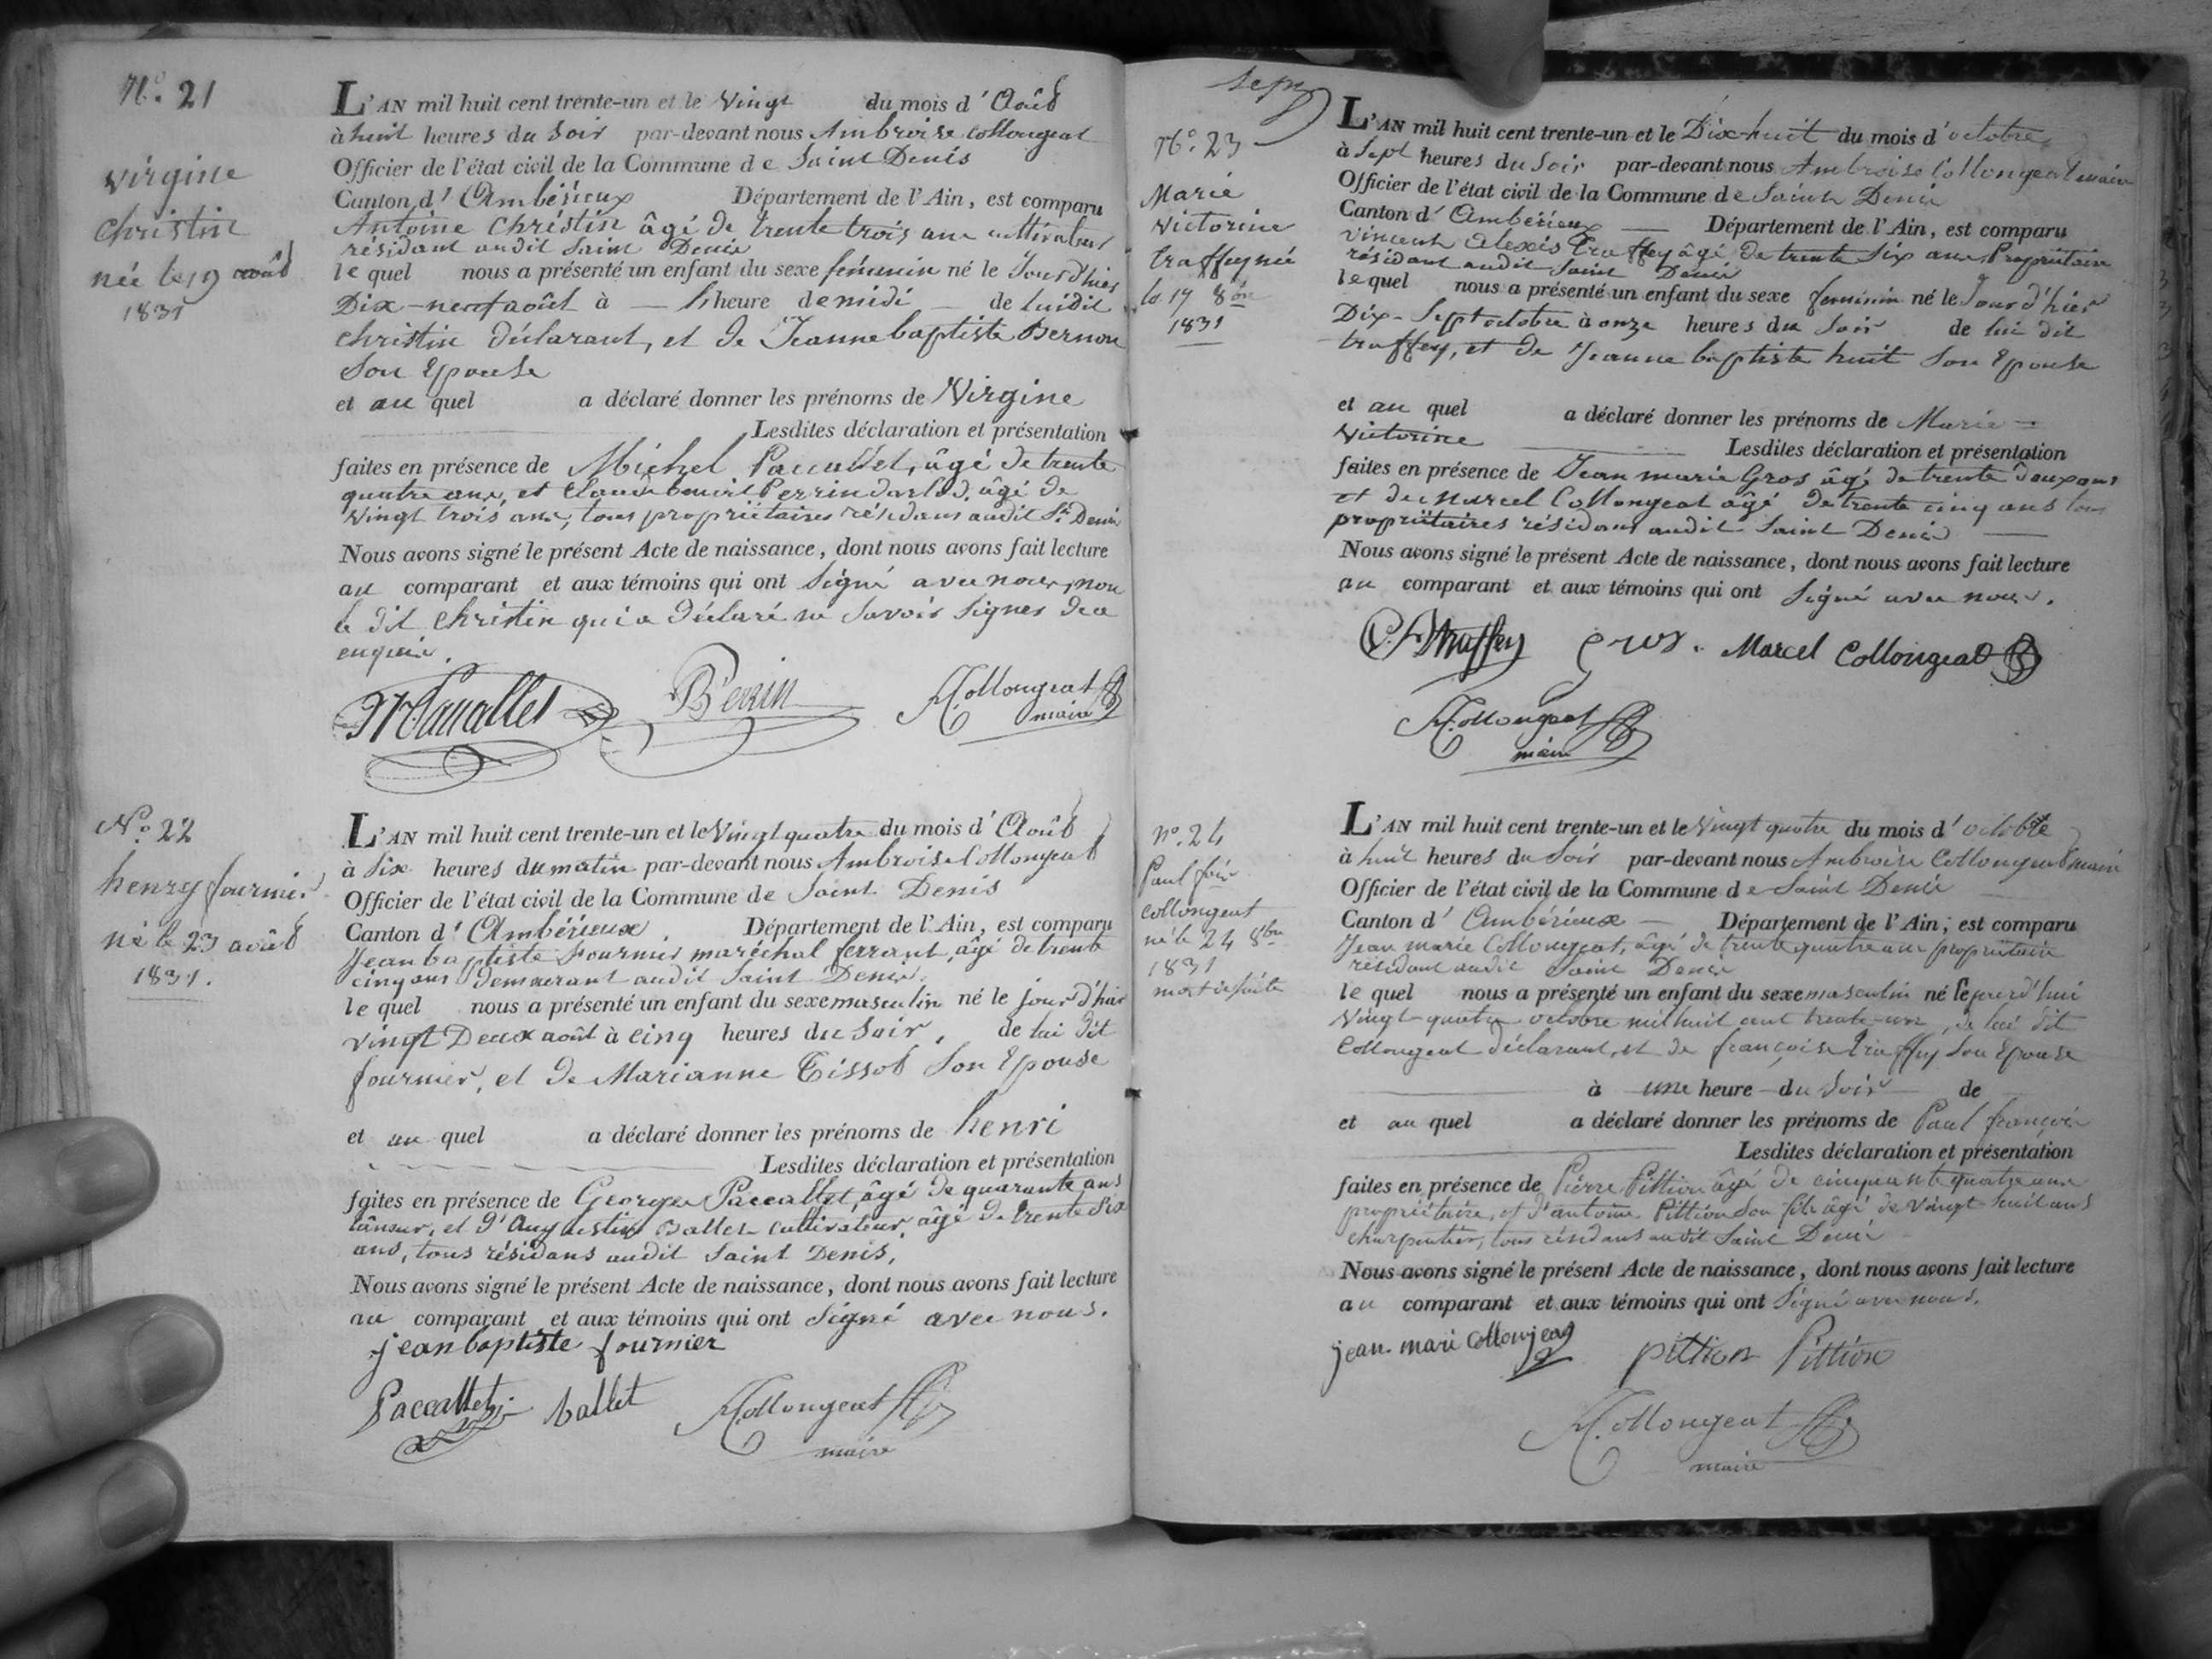 N.° 21
Virgine
Christin
née le 19 août
1831
L'AN mil huit cent trente-un et le Vingt du mois d'Août
à huit heures du soir par-devant nous Ambroise Collongeat
Officier de l'état civil de la Commune de Saint Denis
Canton d'Ambérieux Département de l'Ain, est comparu
Antoine Christin âgé de trente trois ans cultivateur
résidant audit Saint Denis
le quel nous a présenté un enfant du sexe féminin né le Jour d'hier
Dix-neuf août à — heure de midi — de lui dit
Christin déclarant, et de Jeanne baptiste Bernon
son Epouse
et au quel a déclaré donner les prénoms de Virgine
Lesdites déclaration et présentation
faites en présence de Michel Paccallet, âgé de trente
quatre ans, et Claude benoit Perrin darlod, âgé de
Vingt trois ans, tous propriétaires résidans audit St. Denis
Nous avons signé le présent Acte de naissance, dont nous avons fait lecture
au comparant et aux témoins qui ont signé avec nous, non
le dit Christin qui a déclaré ne savoir signer de ce
enquis.
Paccallet Perrin A. Collongeat
maire
N.° 22
henry fournier
né le 23 août
1831.
L'AN mil huit cent trente-un et le Vingt quatre du mois d'Août
à six heures du matin par-devant nous Ambroise Collongeat
Officier de l'état civil de la Commune de Saint Denis
Canton d'Ambérieux Département de l'Ain, est comparu
Jean baptiste Fournier maréchal ferrant, âgé de trente
cinq ans demeurant audit Saint Denis.
le quel nous a présenté un enfant du sexe masculin né le jour d'hier
vingt Deux août à cinq heures du soir, de lui dit
fournier, et de Marianne Tissot son Epouse
et au quel a déclaré donner les prénoms de henri
Lesdites déclaration et présentation
faites en présence de Georges Paccallet, âgé de quarante ans
tâneur, et d'Augustin Ballet cultivateur, âgé de trente six
ans, tous résidans audit Saint Denis,
Nous avons signé le présent Acte de naissance, dont nous avons fait lecture
au comparant et aux témoins qui ont signé avec nous.
jean baptiste fournier
Paccallet ballet A. Collongeat
maire
sept
N.° 23
Marie
Victorine
traffey née
le 17 8bre
1831
L'AN mil huit cent trente-un et le Dix-huit du mois d'octobre
à sept heures du Soir par-devant nous Ambroise Collongeat maire
Officier de l'état civil de la Commune de Saint Denis
Canton d'Ambérieux — Département de l'Ain, est comparu
Vincent Alexis traffey âgé de trente six ans, Propriétaire
résidant audit Saint Denis
le quel nous a présenté un enfant du sexe féminin né le Jour d'hier
Dix-sept octobre à onze heures du soir de lui dit
traffey, et de Jeanne baptiste huit son Epouse
et au quel a déclaré donner les prénoms de Marie
Victorine Lesdites déclaration et présentation
faites en présence de Jean marie Gros âgé de trente deux ans
et de Marcel Collongeat âgé de trente cinq ans tous
propriétaires résidans audit Saint Denis
Nous avons signé le présent Acte de naissance, dont nous avons fait lecture
au comparant et aux témoins qui ont signé avec nous.
traffey gros. Marcel Collongeat
A. Collongeat
maire
N.° 24
Paul fois
Collongeat
né le 24 8bre
1831
mort
L'AN mil huit cent trente-un et le Vingt quatre du mois d'octobre
à huit heures du Soir par-devant nous Ambroise Collongeat maire
Officier de l'état civil de la Commune de Saint Denis
Canton d'Ambérieux — Département de l'Ain, est comparu
Jean marie Collongeat, âgé de trente quatre ans propriétaire
résidant audit Saint Denis
le quel nous a présenté un enfant du sexe masculin né le jourd'hui
Vingt-quatre octobre mil huit cent trente-un, de lui dit
Collongeat déclarant, et de françoise traffey son Epouse
à une heure du soir de
et au quel a déclaré donner les prénoms de Paul françois
Lesdites déclaration et présentation
faites en présence de Pierre Pittion âgé de cinquante quatre ans
propriétaire, et d'antoine Pittion son fils âgé de Vingt huit ans
charpentier, tous résidans audit Saint Denis
Nous avons signé le présent Acte de naissance, dont nous avons fait lecture
au comparant et aux témoins qui ont signé avec nous.
jean mari Collonjeat pittion Pittion
A. Collongeat
maire